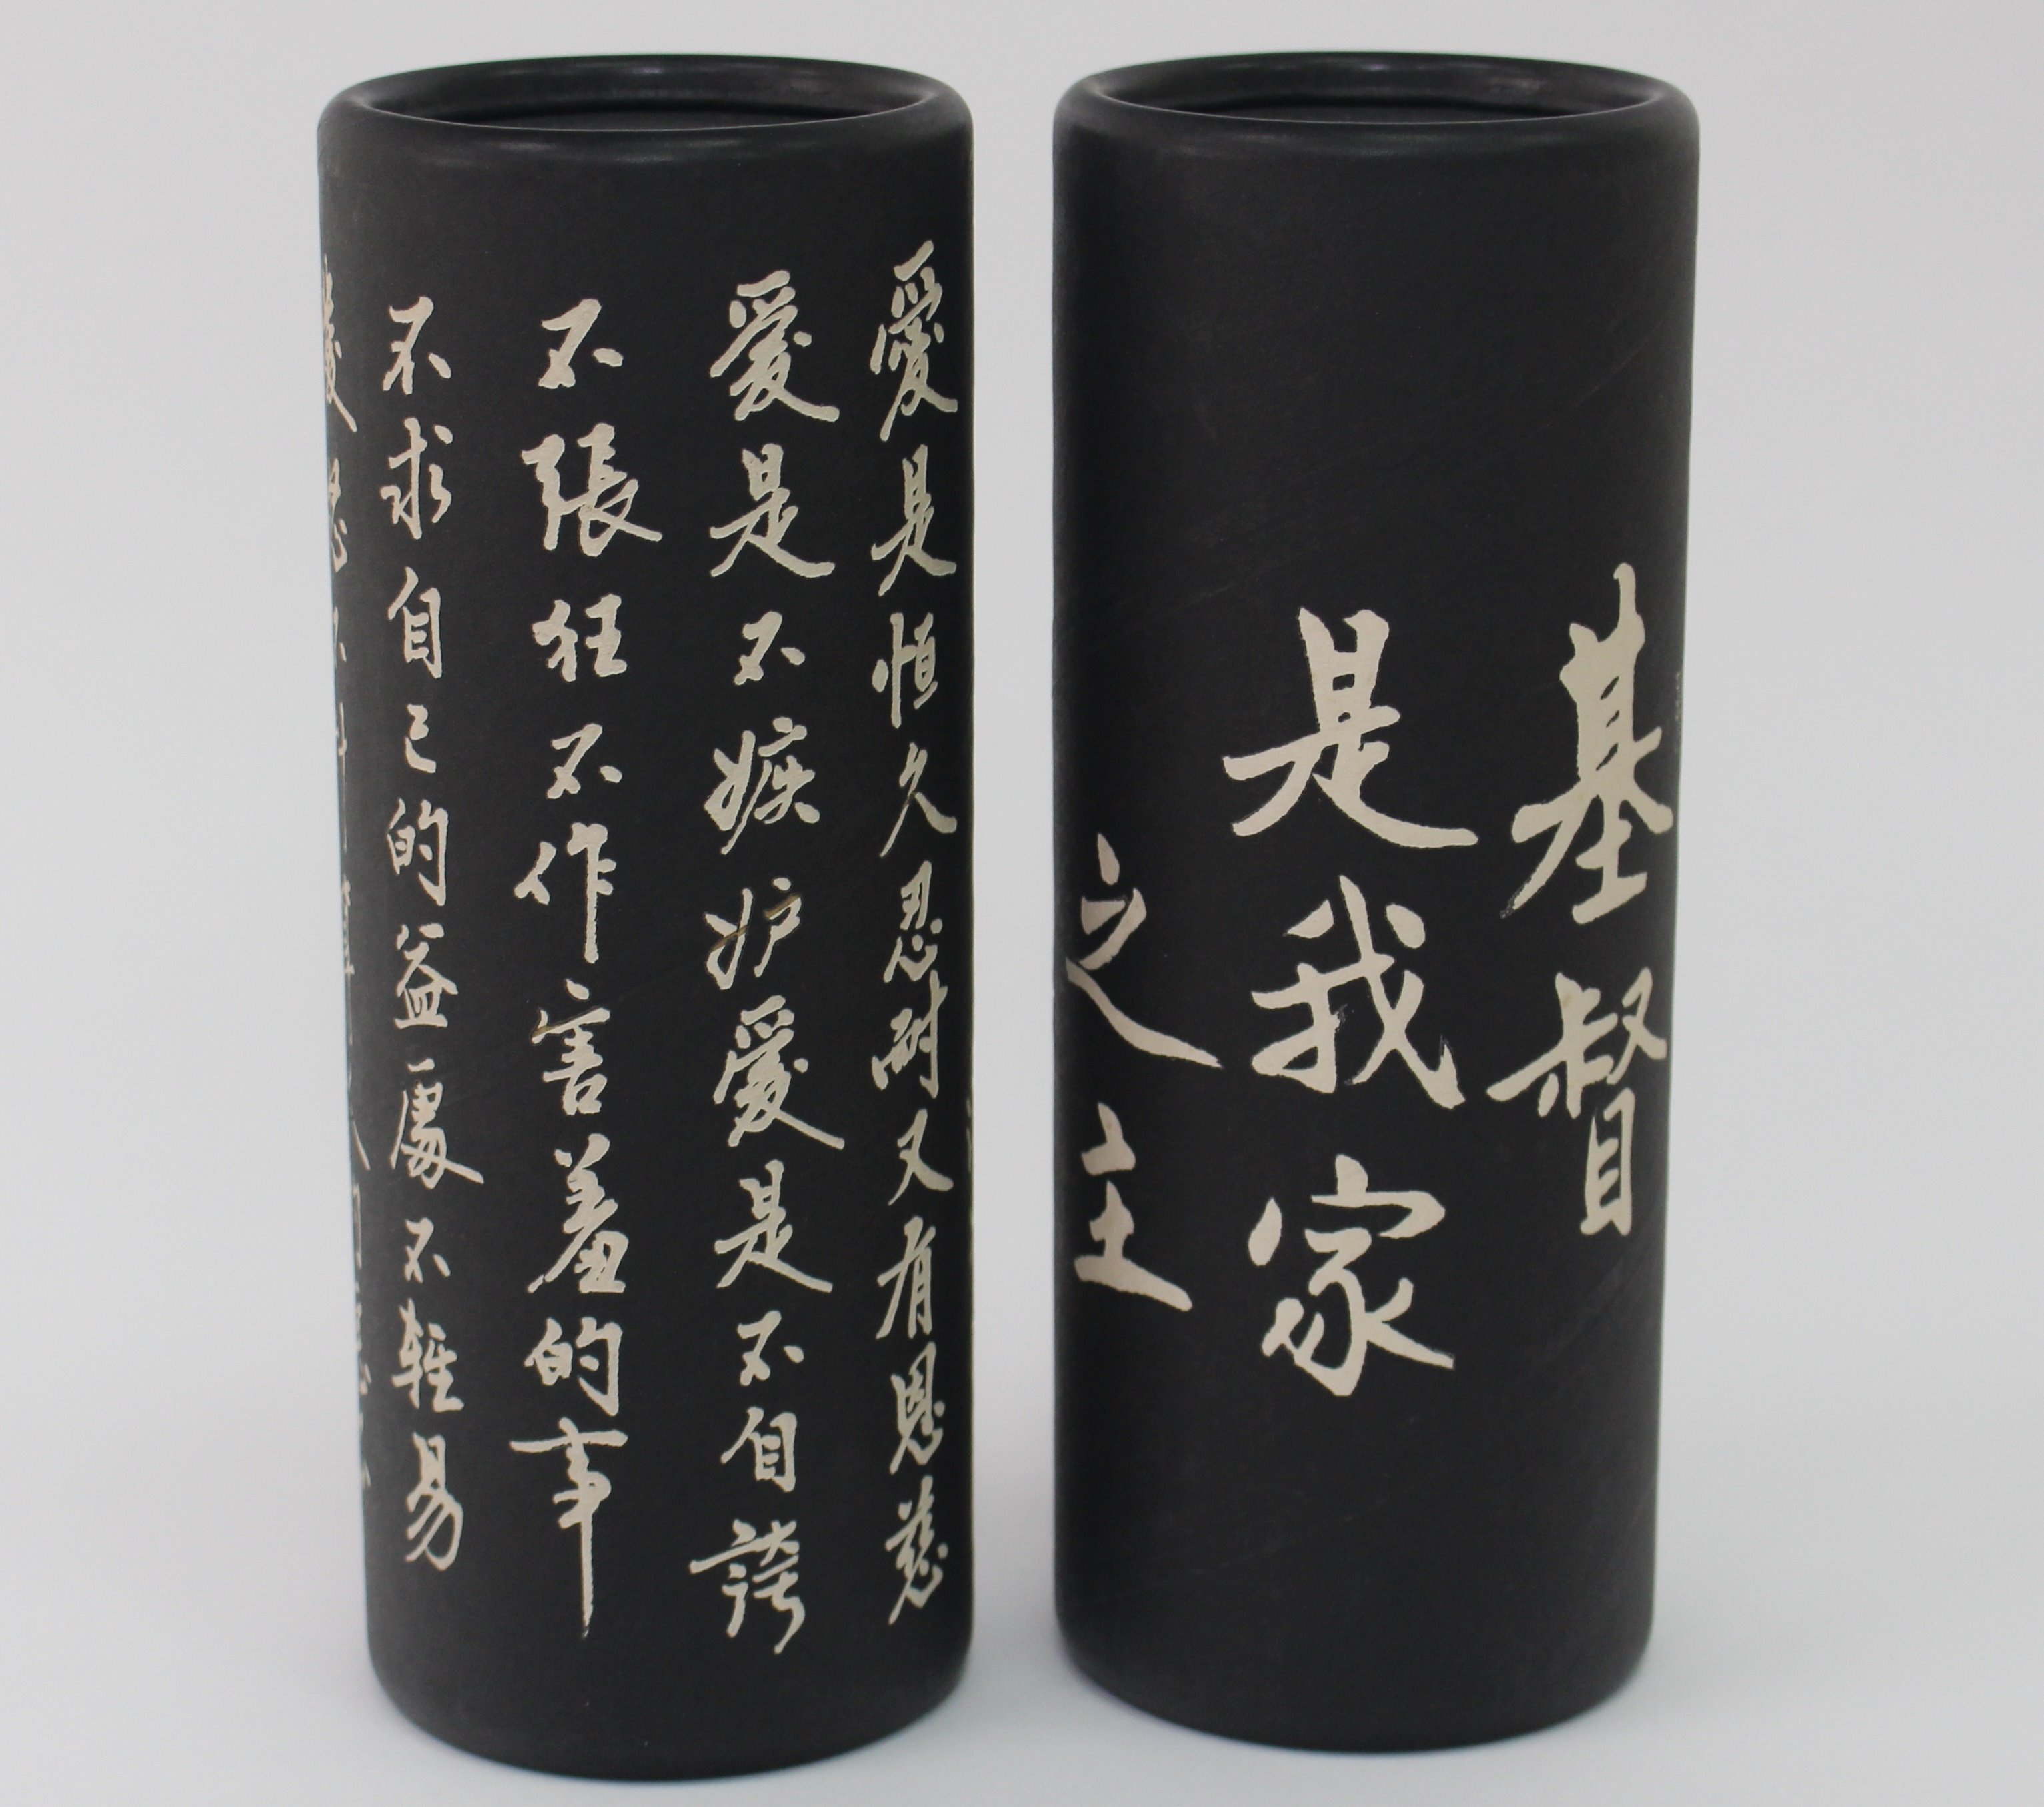 愛是恒久忍耐又有恩慈
愛是不嫉妒愛是不自誇
不張狂不作害羞的事
不求自己的益處不輕易
基督
是我家
之主